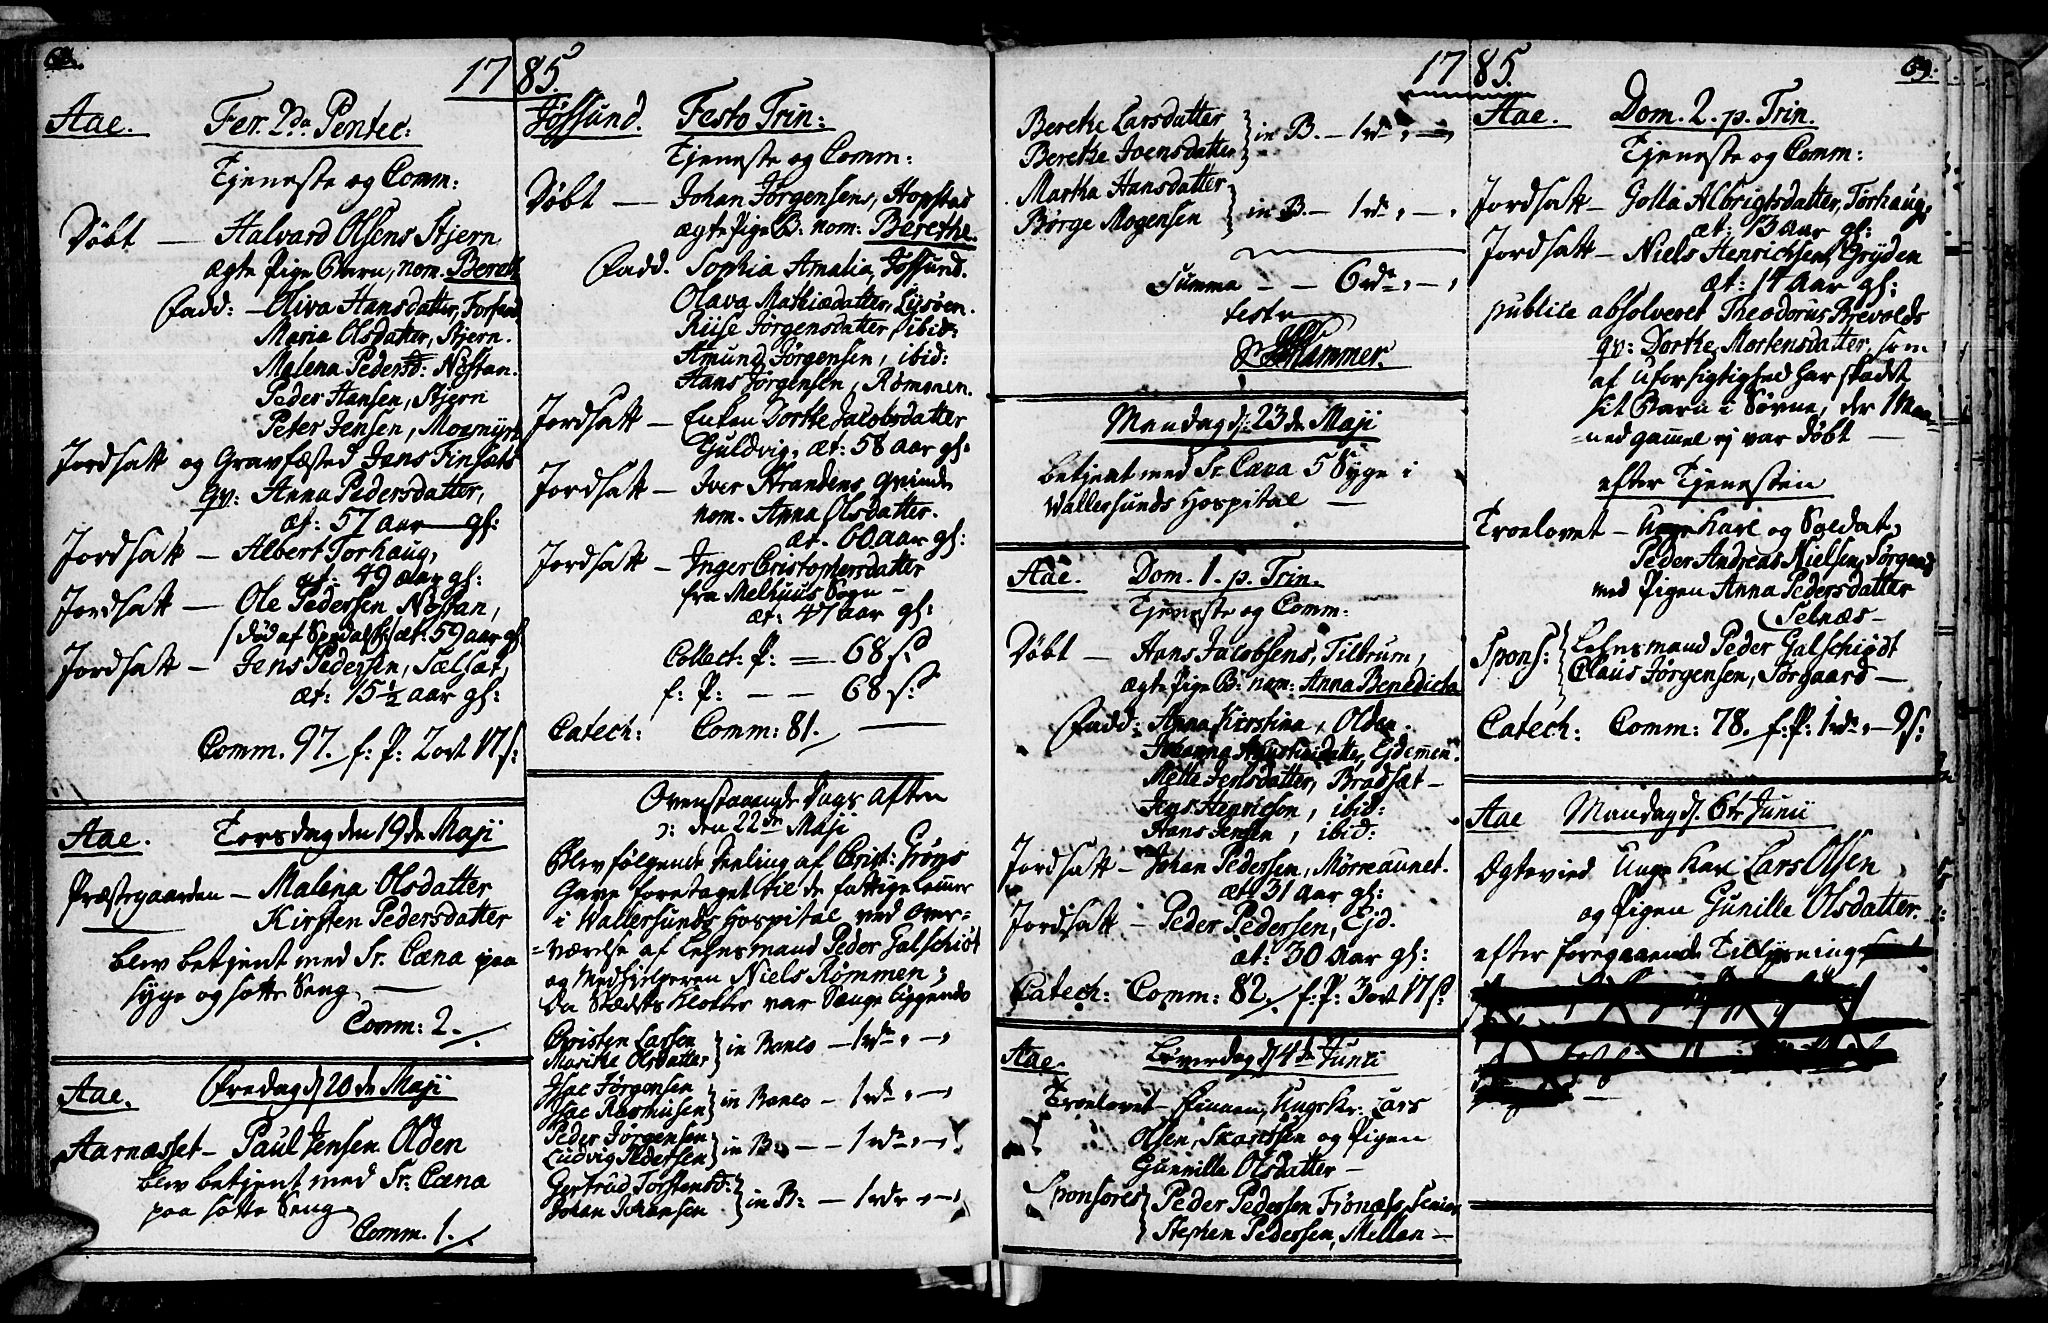 68.
1785.
Aae. Fer. 2da Pentec:
Tjeneste og Comm:
Døbt — Halvard Olsens Stjern
ægte Pige Barn, nom. Bereth
Fadd: — Oliva Hansdatter, Forsand
Maria Olsdatter, Stjern.
Malena Pedersd: Nøstan.
Peder Hansen, Stjern
Peter Jensen, Mosmyra
Jordsatt og Gravfæsted Jens Finsæts
qv: Anna Pedersdatter,
æt: 57 aar gl:
Jordsatt — Albert Torhaug,
æt: 49 aar gl:
Jordsatt — Ole Pedersen Nøstan,
(død af Spedalsk:) æt: 59 aar gl
Jordsatt — Jens Pedersen, Sælsæt,
æt: 15 ½ aar gl:
Comm. 97. f: P: 2 ort 17 s:
Aae. Torsdag den 19de Maji
Præstegaarden — Malena Olsdatter
Kirsten Pedersdatter
blev betjent med Sr. Cæna paa
syge og sotte Seng —
Comm: 2.
Aae. Fredag d 20de Maji
Aarnæsset — Paul Jensen Olden
blev betjent med Sr. Cæna
paa sotte Seng
Comm. 1.
Jøssund. Festo Trin:
Tjeneste og Comm:
Døbt — Johan Jørgensens, Hopstad
ægte Pige B: nom: Berethe.
Fadd. Sophia Amalia, Jøssund.
Olava Mathiædatter, Lysøen.
Riise Jørgensdatter, ibid:
Amund Jørgensen, ibid:
Hans Jørgensen, Rømmen.
Jordsatt — Enken Dorthe Jacobsdatter
Guldvig, æt: 58 aar gl:
Jordsatt — Iver Strandens Qvinde
nom. Anna Olsdatter.
æt. 60 aar gl:
Jordsatt — Inger Cristophersdatter
fra Melhuus Sogn —
æt: 47 aar gl:
Collect: P: — 68 s:
f: P: — — 68 s:
Catech: Comm: 81.
Ovenstaaende Dags aften
ɔ: den 22de Maji
Blev følgende Deeling af Crist: Grøns
Gave foretaget til de fattige Lemmer
i Wallersunds Hospital ved Over-
=værelse af Lehnsmand Peder Galschiøt
og Medhielperen Niels Rømmen;
da Stedets Kloster var Sænge liggende
Christen Larsen
Marithe Olsdatter } in Banco — 1 rdr, —,
Isac Jørgensen
Isac Rasmusen } in Banco — 1 rd: —,
Peder Jørgensen
Ludvig Pedersen } in B: — 1 rdr, —,
Gertrud Torstensd:
Johan Johansen } in B: — 1 rdr, —,
1785.
69.
Berethe Larsdatter
Berethe Joensdatter } in B. — 1 rdr, —,
Martha Hansdatter
Børge Mogensen } in B. — 1 rdr, —,
Summa — — 6 rdr, —,
testr
Hammer.
Mandag d: 23de Maji
betjent med Sr. Cæna 5 Syge i
Wallersunds Hospital —
Aae. Dom. 1. p. Trin.
Tjeneste og Comm:
Døbt — Hans Jacobsens, Tiltrum,
ægte Pige B: nom: Anna Benedicta
Fadd: Anna Kirstina, Olden.
Johanna Augustinsdatter, Ejdemen.
Mette Jensdatter, Bradsæt —
Jens Henricsen, ibid:
Hans Jensen, ibid:
Jordsatt — Johan Pedersen, Mørreaunet.
æt: 31 aar gl:
Jordsatt — Peder Pedersen, Ejd.
æt: 30 aar gl:
Catech: Comm: 82. f: P: 3 ort 17 s:
Aae. Løverdag d 4de Junii
Troelovet — Finnen, Ungekr: Lars
Olsen, Skantsen og Pigen
Gunnille Olsdatter —
Sponsores { Peder Pedersen Frønæss, Senior
Stephen Pedersen, Mellan —
Aae. Dom. 2. p. Trin.
Tjeneste og Comm:
Jordsatt — Golla Albrigtsdatter, Torhaug,
æt: 13 aar gl:
Jordsatt — Niels Henrichsen, Gryden
æt: 14 aar gl:
publice absolveret Theodorus Brevolds
qv: Dorthe Mortensdatter, som
af uforsigtighed har skadet
sit Barn i Søvne, der 1 Maa-
=ned gammel ej var døbt —
efter Tjenesten
Troelovet — Unge Karl og Soldat,
Peder Andreas Nielsen, Sørgard
med Pigen Anna Pedersdatter
Selnæs —
Spons: { Lehnsmand Peder Galschiødt
Claus Jørgensen, Sørgaard —
Catech: Comm: 78. f: P: 1 rdr, — 9 s:
Aae Mandag d. 6te Junii
Ægteviede Unge Karl Lars Olsen
og Pigen Gunille Olsdatter.
efter foregaaende Tillysning